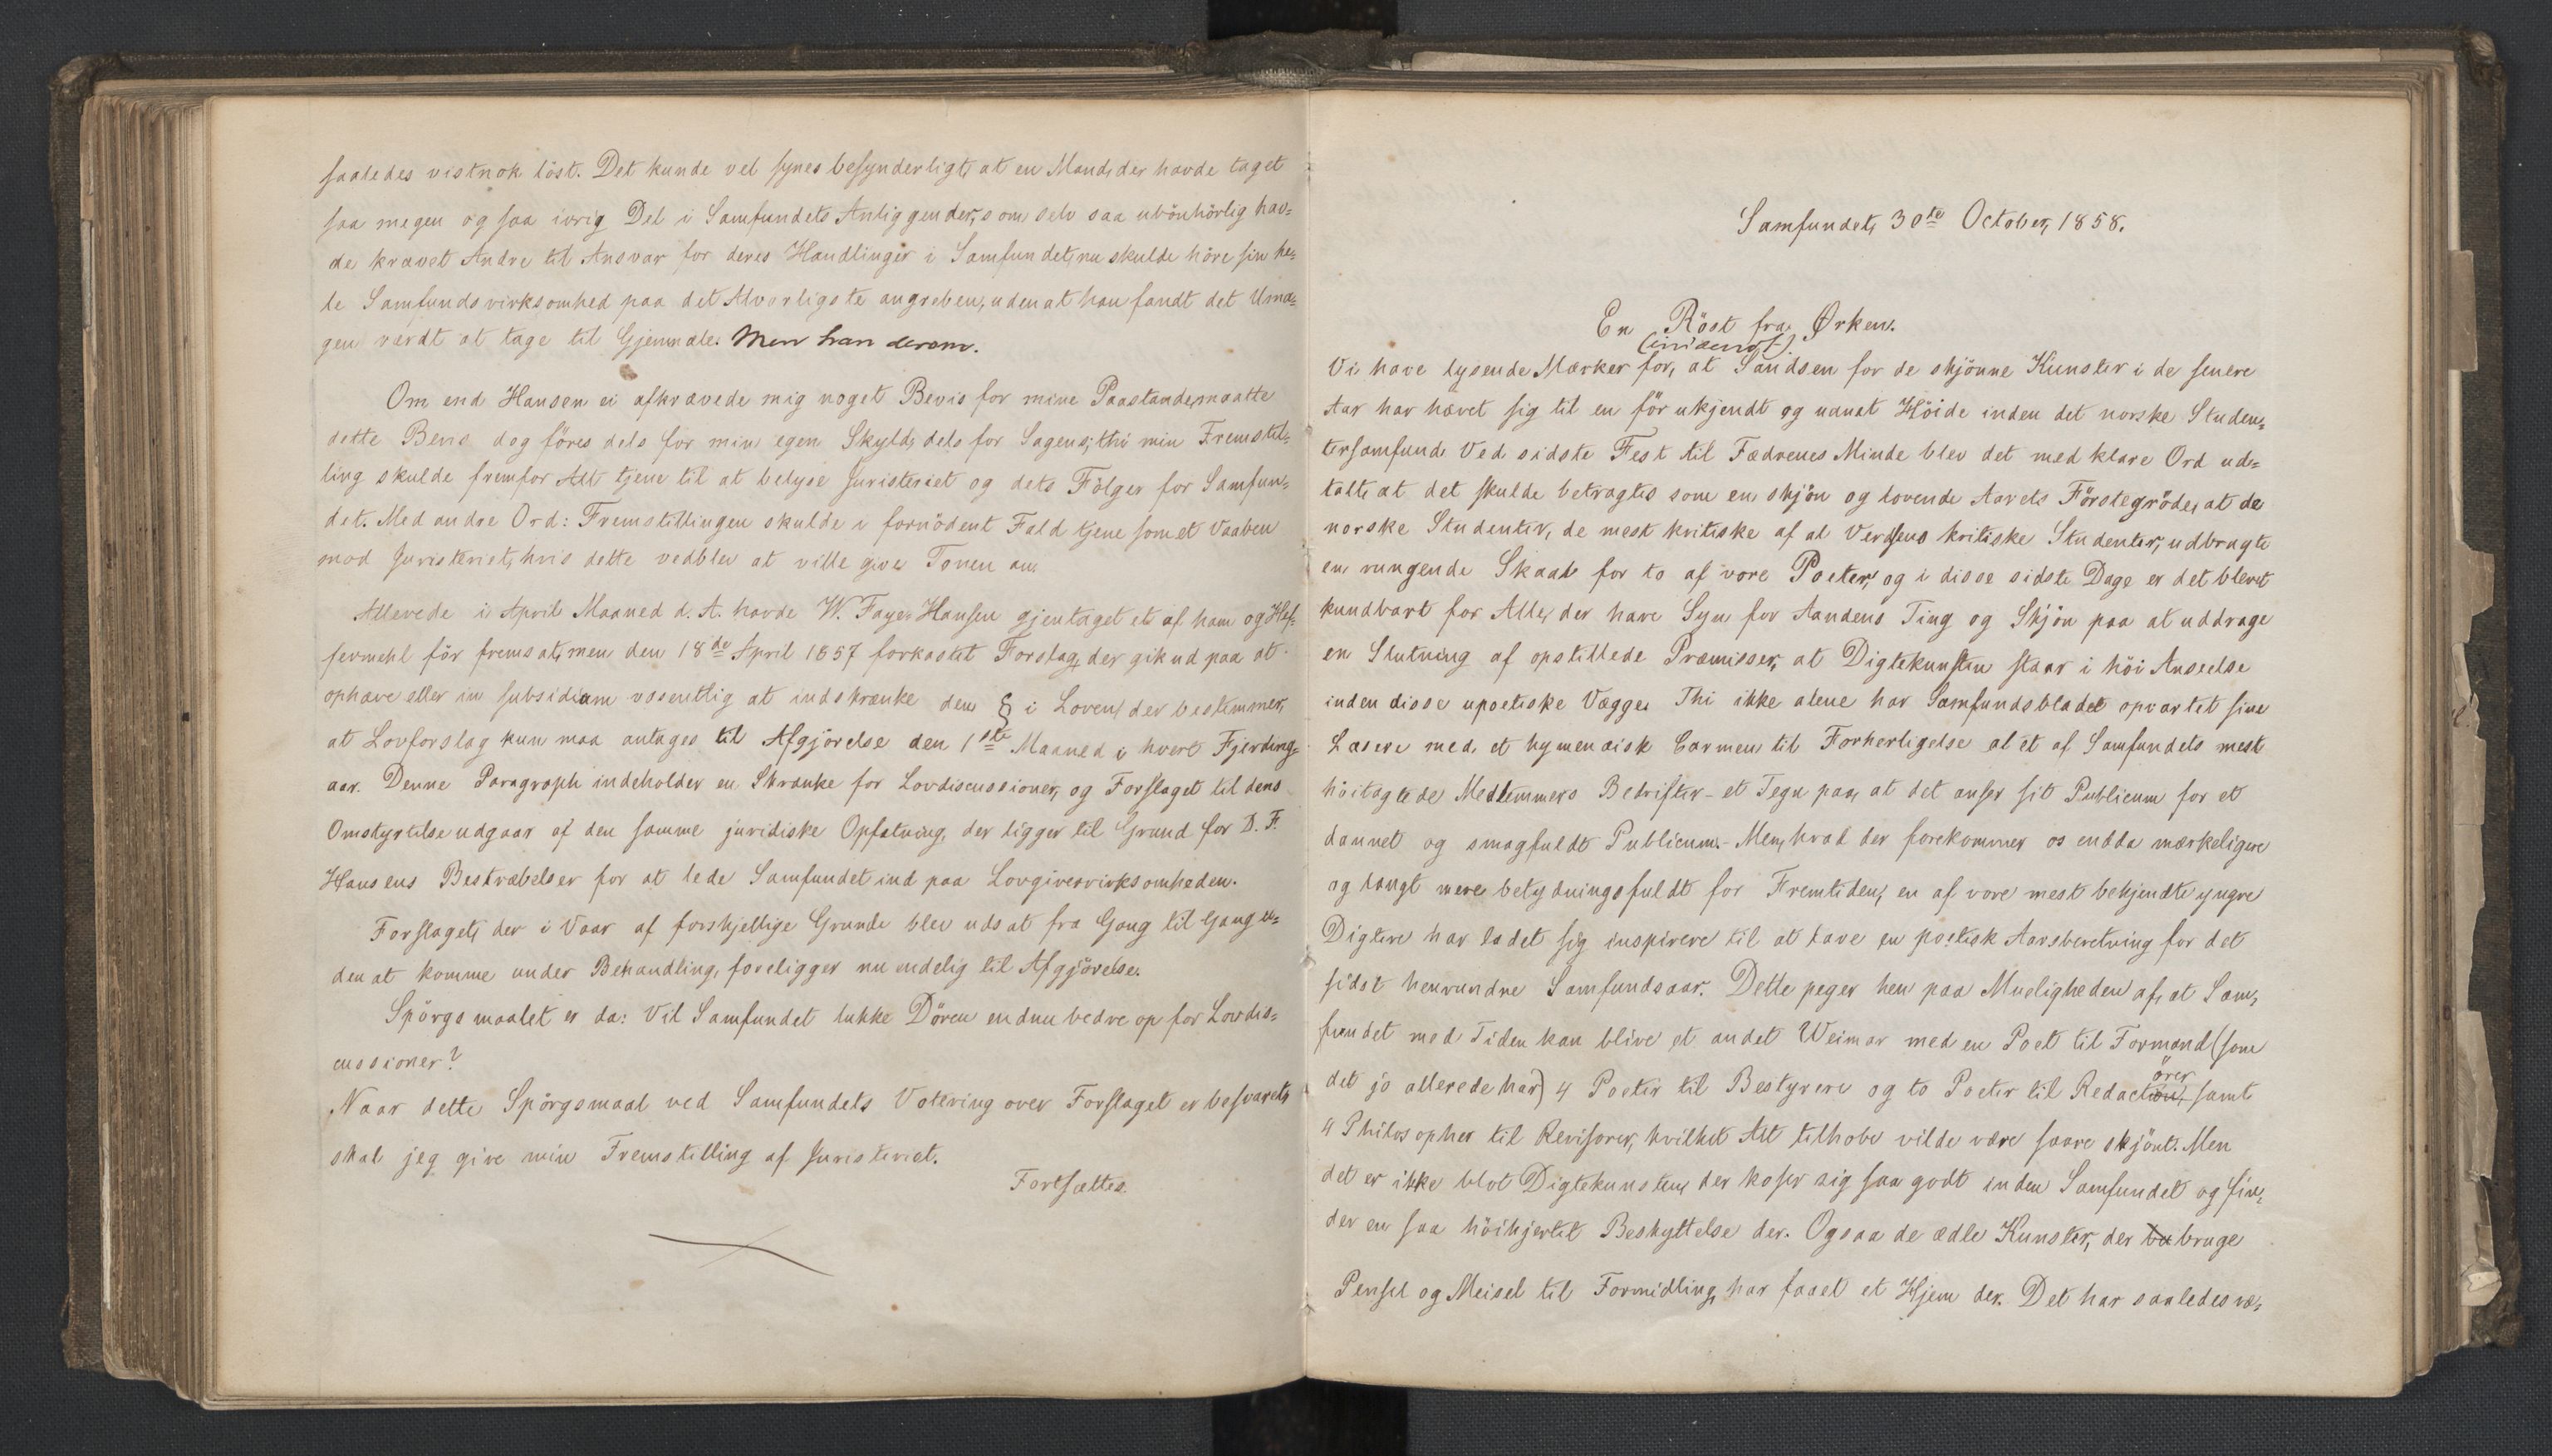 saaledes vistnok löst. Det kunde vel synes besynderligt, at en Mand, der havde taget
saa megen og saa ivrig Del i Samfundets Anliggender, som selv saa ubönhörlig hav=
de krævet Andre til Ansvar for deres Handlinger i Samfundet, nu skulde höre sin he=
le Samfundsvirksomhed paa det Alvorligste angreben, uden at han fandt det Uma=
gen værdt at tage til Gjenmæle. Men han derom.
Om end Hansen ei afkrævede mig noget Bevis for mine Paastande, maatte
dette Bevis dog föres dels for min egen Skyld, dels for Sagens; thi min Fremstil=
ling skulde fremfor Alt tjene til at belyse Juristeriet og dets Fölger for Samfun=
det. Med andre Ord: Fremstillingen skulde i fornödent Fald tjene som et Vaaben
mod Juristeriet, hvis dette vedblev at ville give Tonen an.
Allerede i April Maaned d. A. havde W. Faye Hansen gjentaget et af ham og Hef=
fermehl för fremsat, men den 18de April 1857 forkastet Forslag, der gik ud paa at
ophæve eller in subsidium væsentlig at indskrænke den § i Loven, der bestemmer,
at Lovforslag kun maa antages til Afgjörelse den 1ste Maaned i hvert Fjerding=
aar. Denne Paragraph indeholder en Skranke for Lovdiscussioner, og Forslaget til dens
Omstyrtelse udgaar af den samme juridiske Opfatning, der ligger til Grund for D. F.
Hansens Bestræbelser for at lede Samfundet ind paa Lovgivervirksomheden.
Forslaget, der i Vaar af forskjellige Grunde blev udsat fra Gang til Gang u=
den at komme under Behandling, foreligger nu endelig til Afgjörelse.
Spörgsmaalet er da: Vil Samfundet lukke Dören endnu bedre op for Lovdis=
cussioner?
Naar dette Spörgsmaal ved Samfundets Votering over Forslaget er besvaret,
skal jeg give min Fremstilling af Juristeriet.
Fortsættes.
Samfundet, 30te October, 1858.
En Röst fra Ørken.
(indsendt).
Vi have lysende Mærker for, at Sandsen for de skjönne Kunster i de senere
Aar har hævet sig til en för ukjendt og uanat Höide inden det norske Studen=
tersamfund. Ved sidste Fest til Fædrenes Minde blev det med klare Ord ud=
talt, at det skulde betragtes som en skjön og lovende Aarets Förstegröde, at de
norske Studenter, de mest kritiske af al Verdens kritiske Studenter, udbragte
en rungende Skaal for to af vore Poeter, og i disse sidste Dage er det blevet
kundbart for Alle, der have Syn for Aandens Ting og Skjön paa at uddrage
en Slutning af opstillede Præmisser, at Digtekunsten staar i höi Anseelse
inden disse upoetiske Vægge. Thi ikke alene har Samfundsbladet opvartet sine
Læsere med et hymenæisk Carmen til Forherligelse af et af Samfundets mest
höitagtede Medlemmers Bedrifter - et Tegn paa, at det anser sit Publicum for et
dannet og smagfuldt Publicum. - Men, hvad der forekommer os endda mærkeligere
og langt mere betydningsfuldt for Fremtiden, en af vore mest bekjendte yngre
Digtere har ladet sig inspirere til at lave en poetisk Aarsberetning for det
sidst henrundne Samfundsaar. Dette peger hen paa Mueligheden af, at Sam=
fundet med Tiden kan blive et andet Weimar med en Poet til Formand (som
det jo allerede har) 4 Poeter til Bestyrere og to Poeter til Redactörer, samt
4 Philosopher til Revisorer, hvilket Alt tilhobe vilde være saare skjönt. Men
det er ikke blot Digtekunsten, der koser sig saa godt inden Samfundet og fin=
der en saa höihjertet Beskyttelse der. Ogsaa de ædle Kunster, der bu bruge
Pensel og Meisel til Formidling, har faaet et Hjem der. Det har saaledes væ=